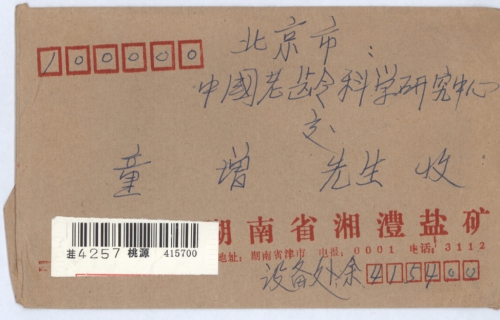 100000
北京市:
中國老龄科学研究中心
交
童增 先生 收
湖南省湘澧盐矿
地址: 湖南省津市 电报: 0001 电话: 3112
4257 桃源 415700
设备处余 415400